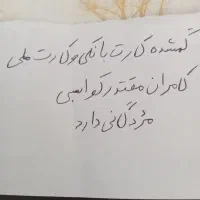 گمشده کارت بانکی و کارت ملی
کامران مقتدر کوابی
مژدگانی دارد